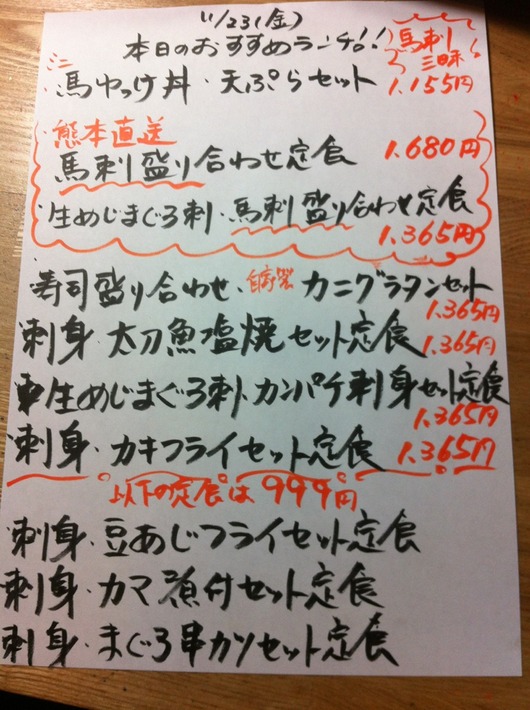 11/23(金)
本日のおすすめランチ!!
馬刺
三昧
ミニ
馬ゆっけ丼・天ぷらセット
1.155円
熊本直送
馬刺盛り合わせ定食
1.680円
生めじまぐろ刺・馬刺盛り合わせ定食
1.365円
寿司盛り合わせ・自家製カニグラタンセット
1.365円
刺身・太刀魚塩焼セット定食
1.365円
生めじまぐろ刺・カンパチ刺身セット定食
1.365円
刺身・カキフライセット定食 1.365円
以下の定食は999円
刺身・豆あじフライセット定食
刺身・カマ煮付セット定食
刺身・まぐろ串カツセット定食